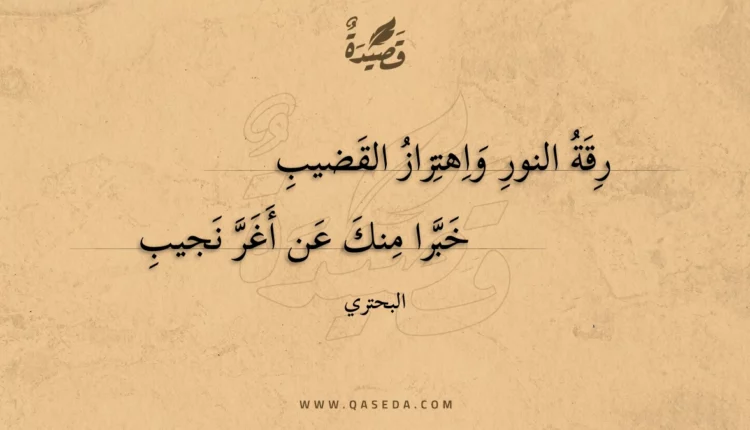 قَصِيدَةٌ
رِقَةُ النورِ وَاِهتِزازُ القَضيبِ
خَبَّرا مِنكَ عَن أَغَرَّ نَجيبِ
البحتري
WWW.QASEDA.COM